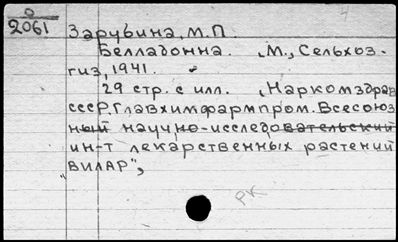 0
2061
Зарубина, М.П.
Белладонна. М., Сельхоз-
гиз, 1941.
29 стр. с илл. Наркомздрав
СССР. Главхимфармпром. Всесоюз
ный научно-исследовательский
ин-т лекарственных растений
"ВИЛАР",
РК